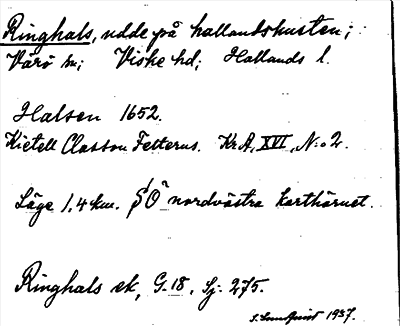 Ringhals, udde på hallandskusten;
Värö sn; Viske hd; Hallands l.
Halsen 1652.
Kietell Classon Felterus. KrA, XVI, N:o 2.
Läge 1,4 km. SO nordvästra karthörnet.
Ringhals ek, G. 18, Sj: 275.
S. Lundquist 1937.